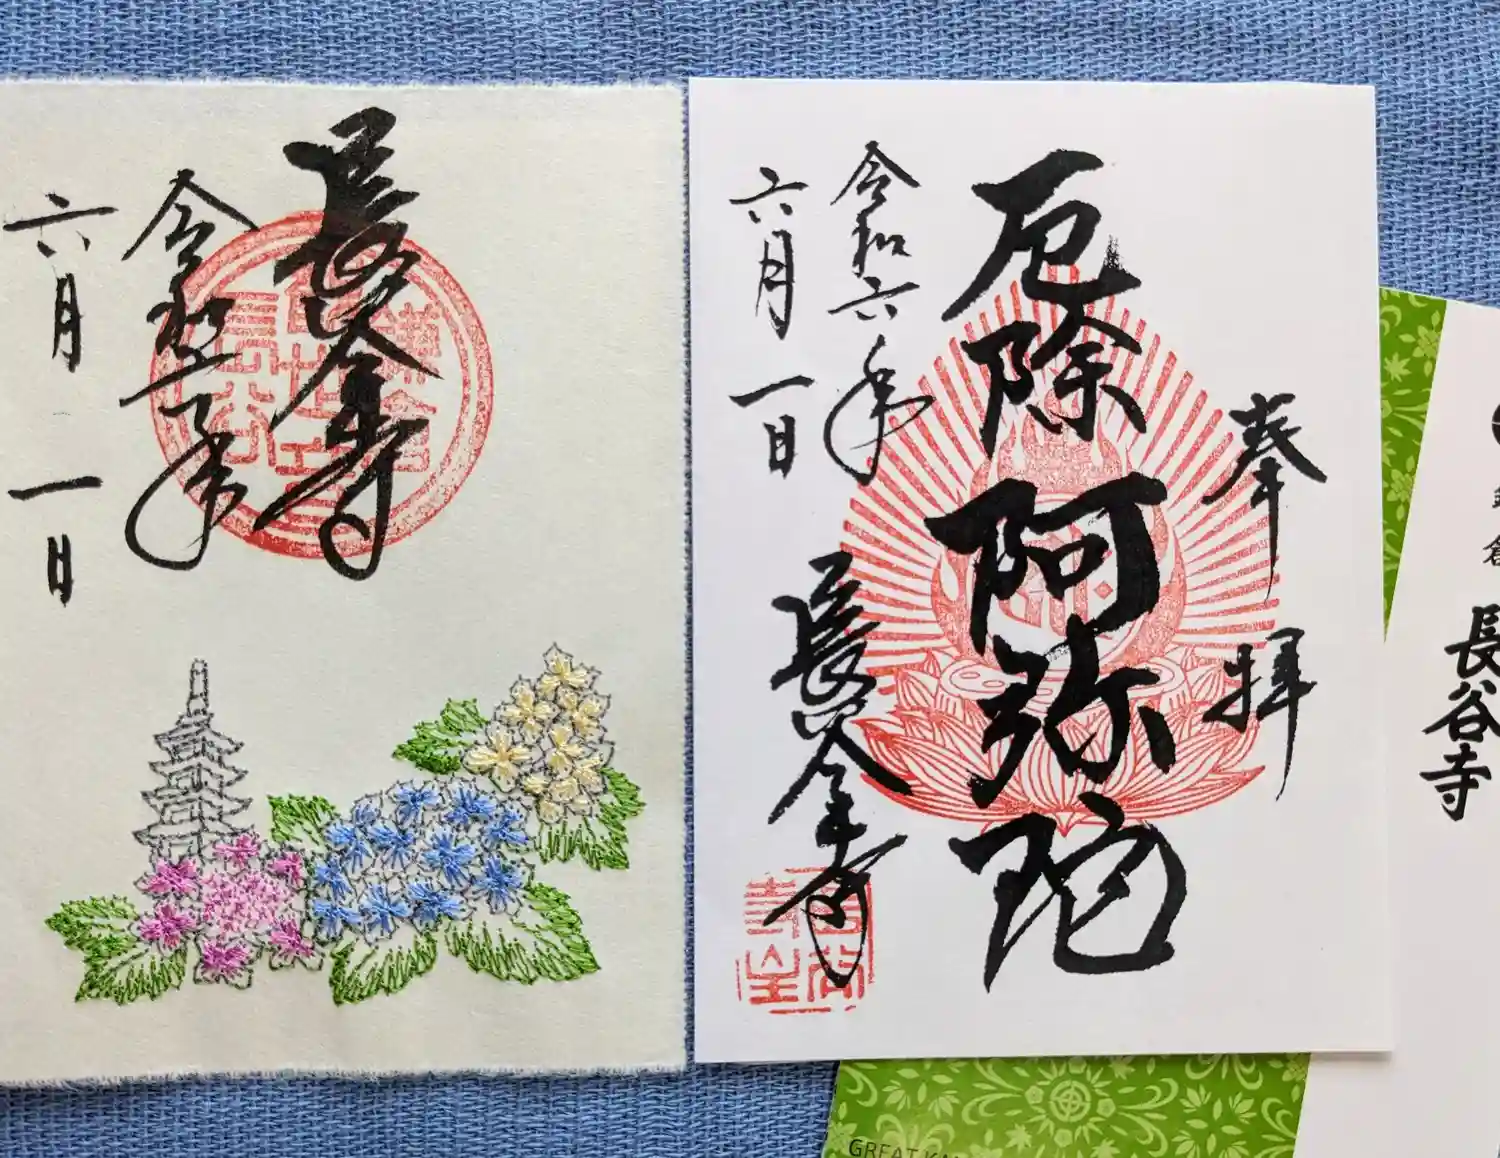 長谷寺
令和六年
六月一日
奉拝
厄除阿弥陀
令和六年
六月一日
長谷寺
鎌倉
長谷寺
GREAT